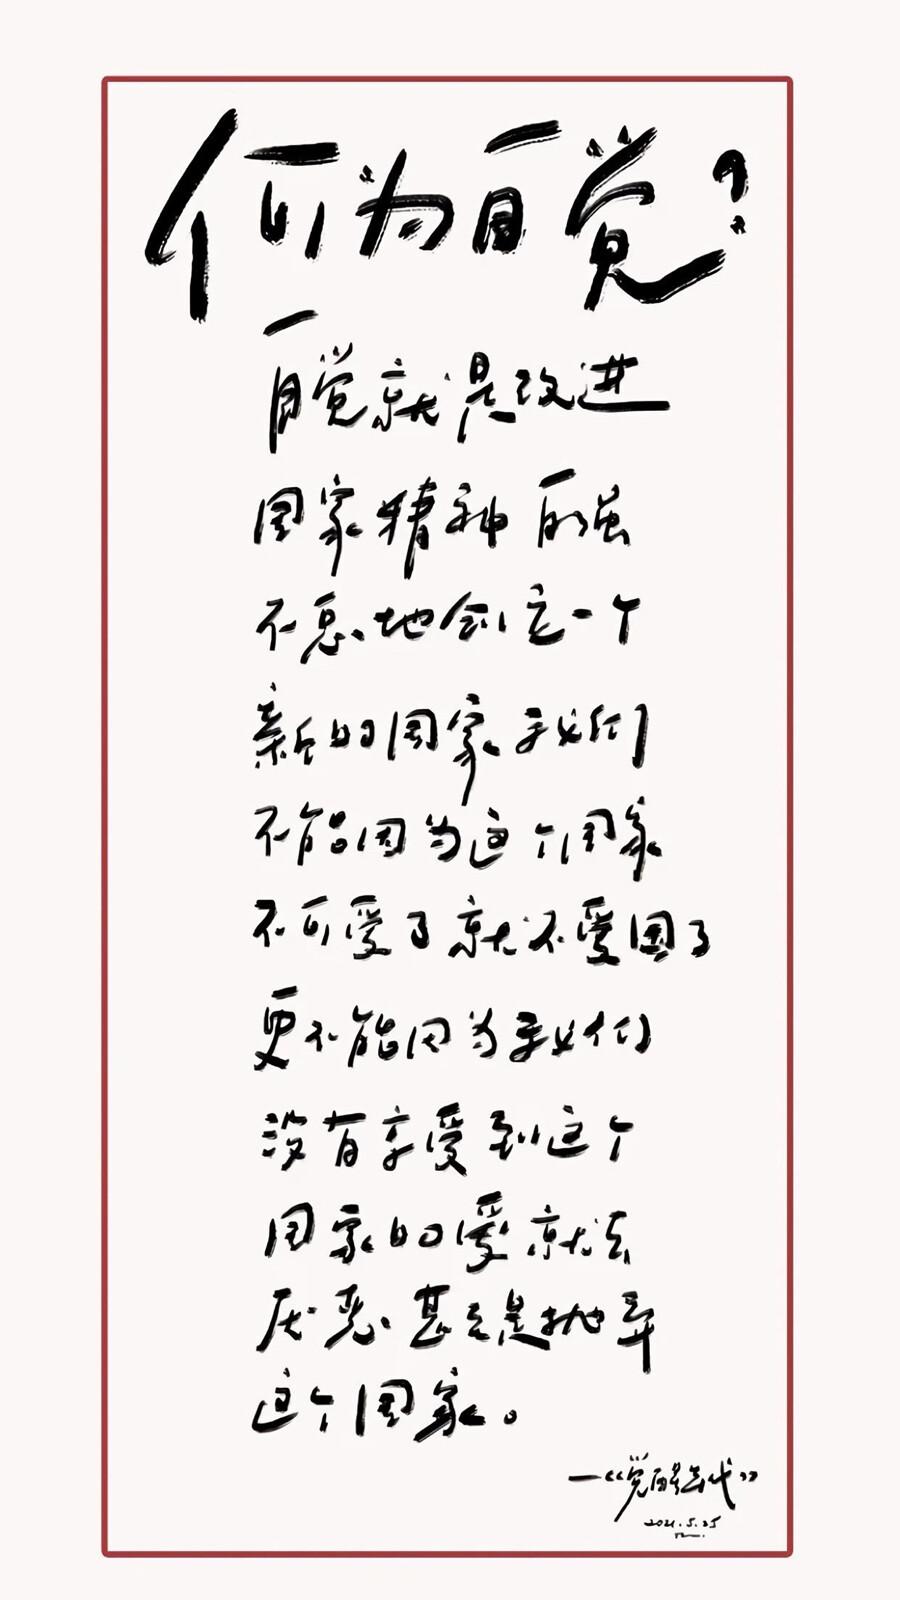 何为自觉?
自觉就是改进
国家精神自强
不息地创立一个
新的国家我们
不能因为这个国家
不可爱了就不爱国了
更不能因为我们
没有享受到这个
国家的爱就去
厌恶甚至是抛弃
这个国家。
—《觉醒年代》
2021.5.25